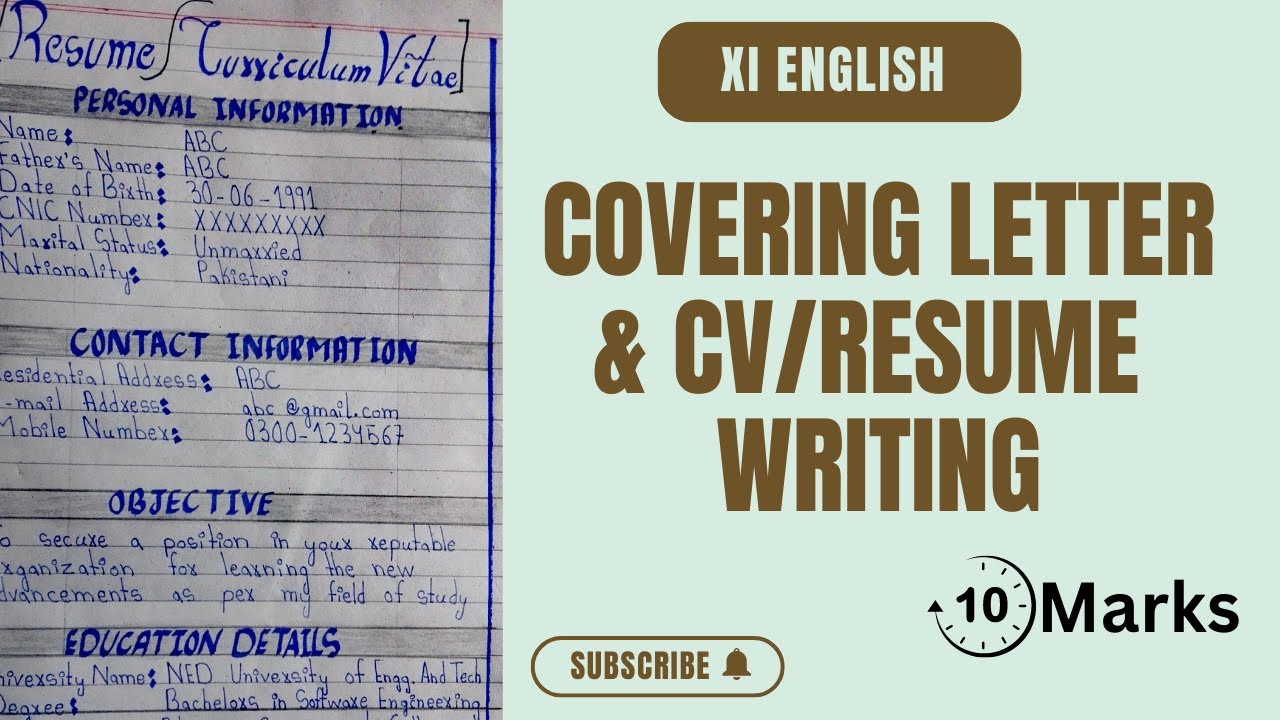 [Resume/Curriculum Vitae]
PERSONAL INFORMATION
Name: ABC
Father's Name: ABC
Date of Birth: 30-06-1991
CNIC Number: XXXXXXXXX
Marital Status: Unmarried
Nationality: Pakistani
CONTACT INFORMATION
esidential Address: ABC
-mail Address: abc@gmail.com
Mobile Number: 0300-1234567
OBJECTIVE
o secure a position in your reputable
rganization for learning the new
dvancements as per my field of study
EDUCATION DETAILS
niversity Name: NED University of Engg. And Tech
Degree: Bachelors in Software Engineering
XI ENGLISH
COVERING LETTER
& CV/RESUME
WRITING
10 Marks
SUBSCRIBE